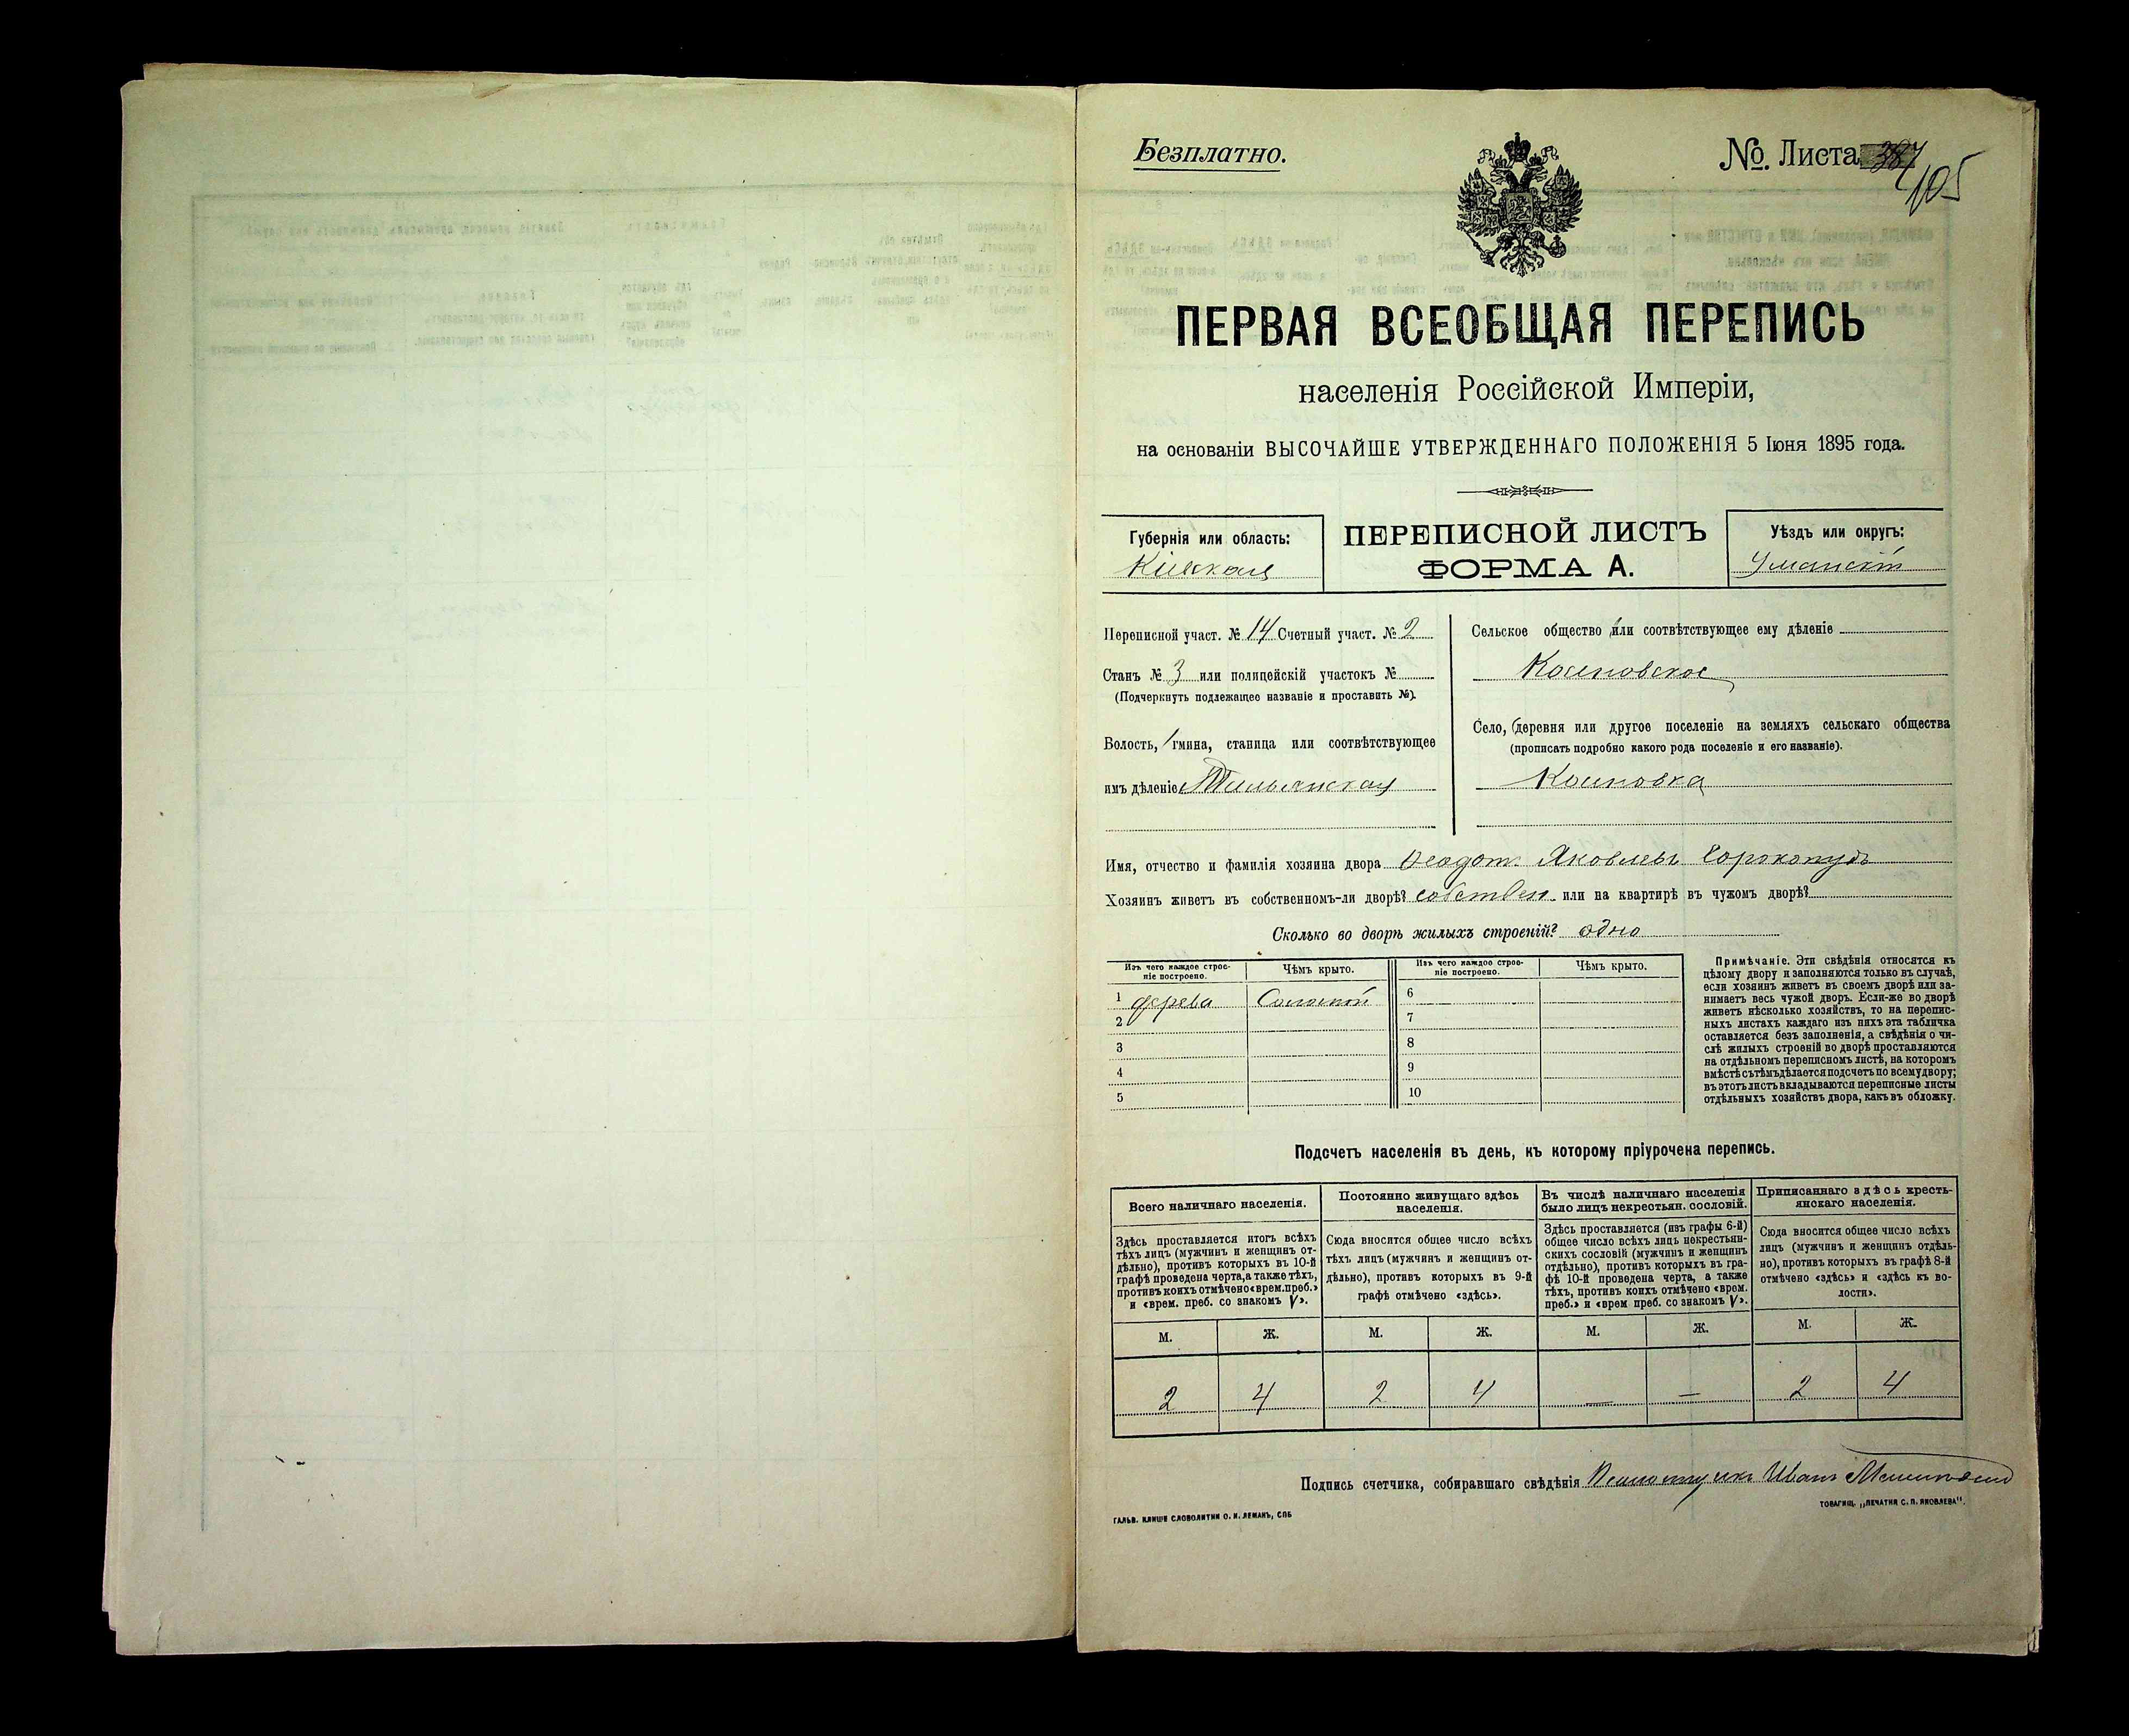 Безплатно.
№. Листа 105
ПЕРВАЯ ВСЕОБЩАЯ ПЕРЕПИСЬ
населенія Россійской Имперіи,
на основаніи ВЫСОЧАЙШЕ УТВЕРЖДЕННАГО ПОЛОЖЕНІЯ 5 Іюня 1895 года.
Губернія или область:
Кіевская
ПЕРЕПИСНОЙ ЛИСТЪ
ФОРМА А.
Уѣздъ или округъ:
Уманскій
Переписной участ. № 14 Счетный участ. № 2
Станъ № 3 или полицейскій участокъ №
(Подчеркнуть подлежащее названіе и проставить №).
Волость, гмина, станица или соотвѣтствующее
имъ дѣленіе
Сельское общество или соотвѣтствующее ему дѣленіе
Село, деревня или другое поселеніе на земляхъ сельскаго общества
(прописать подробно какого рода поселеніе и его названіе).
Имя, отчество и фамилія хозяина двора Феодот Яковлевъ Сорокопудъ
Хозяинъ живетъ въ собственномъ-ли дворѣ? собствен или на квартирѣ въ чужомъ дворѣ?
Сколько во дворѣ жилыхъ строеній? одно
Изъ чего каждое строе-
ніе построено.
Чѣмъ крыто.
Изъ чего каждое строе-
ніе построено.
Чѣмъ крыто.
1 дерева Соломой 6
2 7
3 8
4 9
5 10
Примѣчаніе. Эти свѣдѣнія относятся къ
цѣлому двору и заполняются только въ случаѣ,
если хозяинъ живетъ въ своемъ дворѣ или за-
нимаетъ весь чужой дворъ. Если-же во дворѣ
живетъ нѣсколько хозяйствъ, то на перепис-
ныхъ листахъ каждаго изъ нихъ эта табличка
оставляется безъ заполненія, а свѣдѣнія о чи-
слѣ жилыхъ строеній во дворѣ проставляются
на отдѣльномъ переписномъ листѣ, на которомъ
вмѣстѣ съ тѣмъ дѣлается подсчетъ по всему двору;
въ этотъ листъ вкладываются переписные листы
отдѣльныхъ хозяйствъ двора, какъ въ обложку.
Подсчетъ населенія въ день, къ которому пріурочена перепись.
Всего наличнаго населенія.
Здѣсь проставляется итогъ всѣхъ
тѣхъ лицъ (мужчинъ и женщинъ от-
дѣльно), противъ которыхъ въ 10-й
графѣ проведена черта, а также тѣхъ,
противъ коихъ отмѣчено «врем. преб.»
и «врем. преб. со знакомъ V».
Постоянно живущаго здѣсь
населенія.
Сюда вносится общее число всѣхъ
тѣхъ лицъ (мужчинъ и женщинъ от-
дѣльно), противъ которыхъ въ 9-й
графѣ отмѣчено «здѣсь».
Въ числѣ наличнаго населенія
было лицъ некрестьян. сословій.
Здѣсь проставляется (изъ графы 6-й)
общее число всѣхъ лицъ некрестьян-
скихъ сословій (мужчинъ и женщинъ
отдѣльно), противъ которыхъ въ гра-
фѣ 10-й проведена черта, а также
тѣхъ, противъ коихъ отмѣчено «врем.
преб.» и «врем преб. со знакомъ V».
Приписаннаго здѣсь кресть-
янскаго населенія.
Сюда вносится общее число всѣхъ
лицъ (мужчинъ и женщинъ отдѣль-
но), противъ которыхъ въ графѣ 8-й
отмѣчено «здѣсь» и «здѣсь къ во-
лости».
М. Ж. М. Ж. М. Ж. М. Ж.
2 4 2 4 — — 2 4
Подпись счетчика, собиравшаго свѣдѣнія Иванъ
ГАЛЬВ. КЛИШЕ СЛОВОЛИТНИ О. И. ЛЕМАНЪ, СПБ
ТОВАРИЩ. „ПЕЧАТНЯ С. П. ЯКОВЛЕВА".